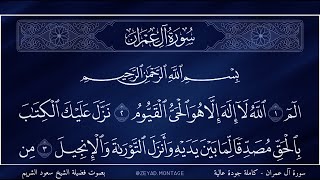 سُورَةُ آلِ عِمْرَان
بِسْمِ ٱللَّهِ ٱلرَّحْمَٰنِ ٱلرَّحِيمِ
الٓمٓ ١ ٱللَّهُ لَآ إِلَٰهَ إِلَّا هُوَ ٱلْحَىُّ ٱلْقَيُّومُ ٢ نَزَّلَ عَلَيْكَ ٱلْكِتَٰبَ
بِٱلْحَقِّ مُصَدِّقًا لِّمَا بَيْنَ يَدَيْهِ وَأَنزَلَ ٱلتَّوْرَىٰةَ وَٱلْإِنجِيلَ ٣ مِن
سورة آل عمران - كاملة جودة عالية @ZEYAD.MONTAGE بصوت فضيلة الشيخ سعود الشريم